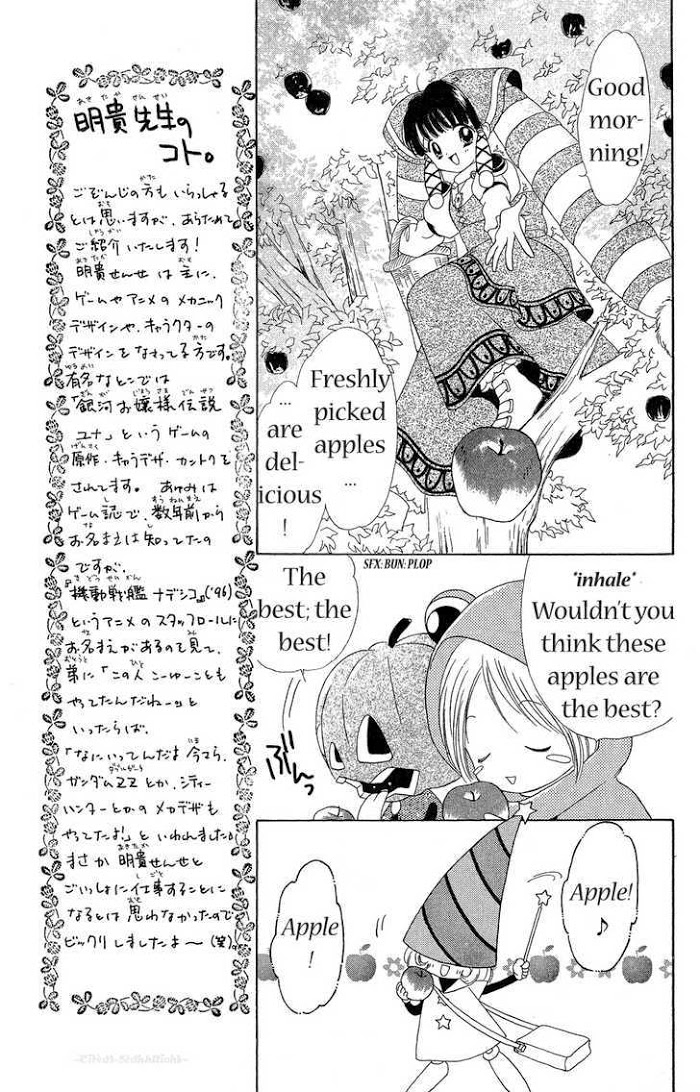 明貴先生の
コト。
ごぞんじの方もいらっしゃる
とは思いますが、あらためて
ご紹介いたします!
明貴せんせは主に、
ゲームやアニメのメカニック
デザインや、キャラクターの
デザインをなさってる方です。
有名なとこでは
「銀河お嬢様伝説
ユナ」というゲームの
原作・キャラデザ・カントクを
されてます。 あゆみは
ゲーム誌で、数年前から
お名まえは知ってたの
ですが、
『機動戦艦ナデシコ』('96)
というアニメのスタッフロールに
お名まえがあるのを見て、
弟に「この人こーゆーことも
やてたんだねーっ」と
いったらば、
「なにいってんだよ今さら、
ガンダムZZとか、シティー
ハンターとかのメカデザも
やってたよ!」といわれました。
まさか明貴せんせと
ごいっしょに仕事することに
なるとは思わなかったので
ビックリしましたよ〜(笑)。
Good
mor-
ning!
Freshly
picked
apples
...
...
are
del-
icious
!
SFX: BUN: PLOP
The
best; the
best!
*inhale*
Wouldn't you
think these
apples are
the best?
ぶんっ
Apple!
♪
Apple
!